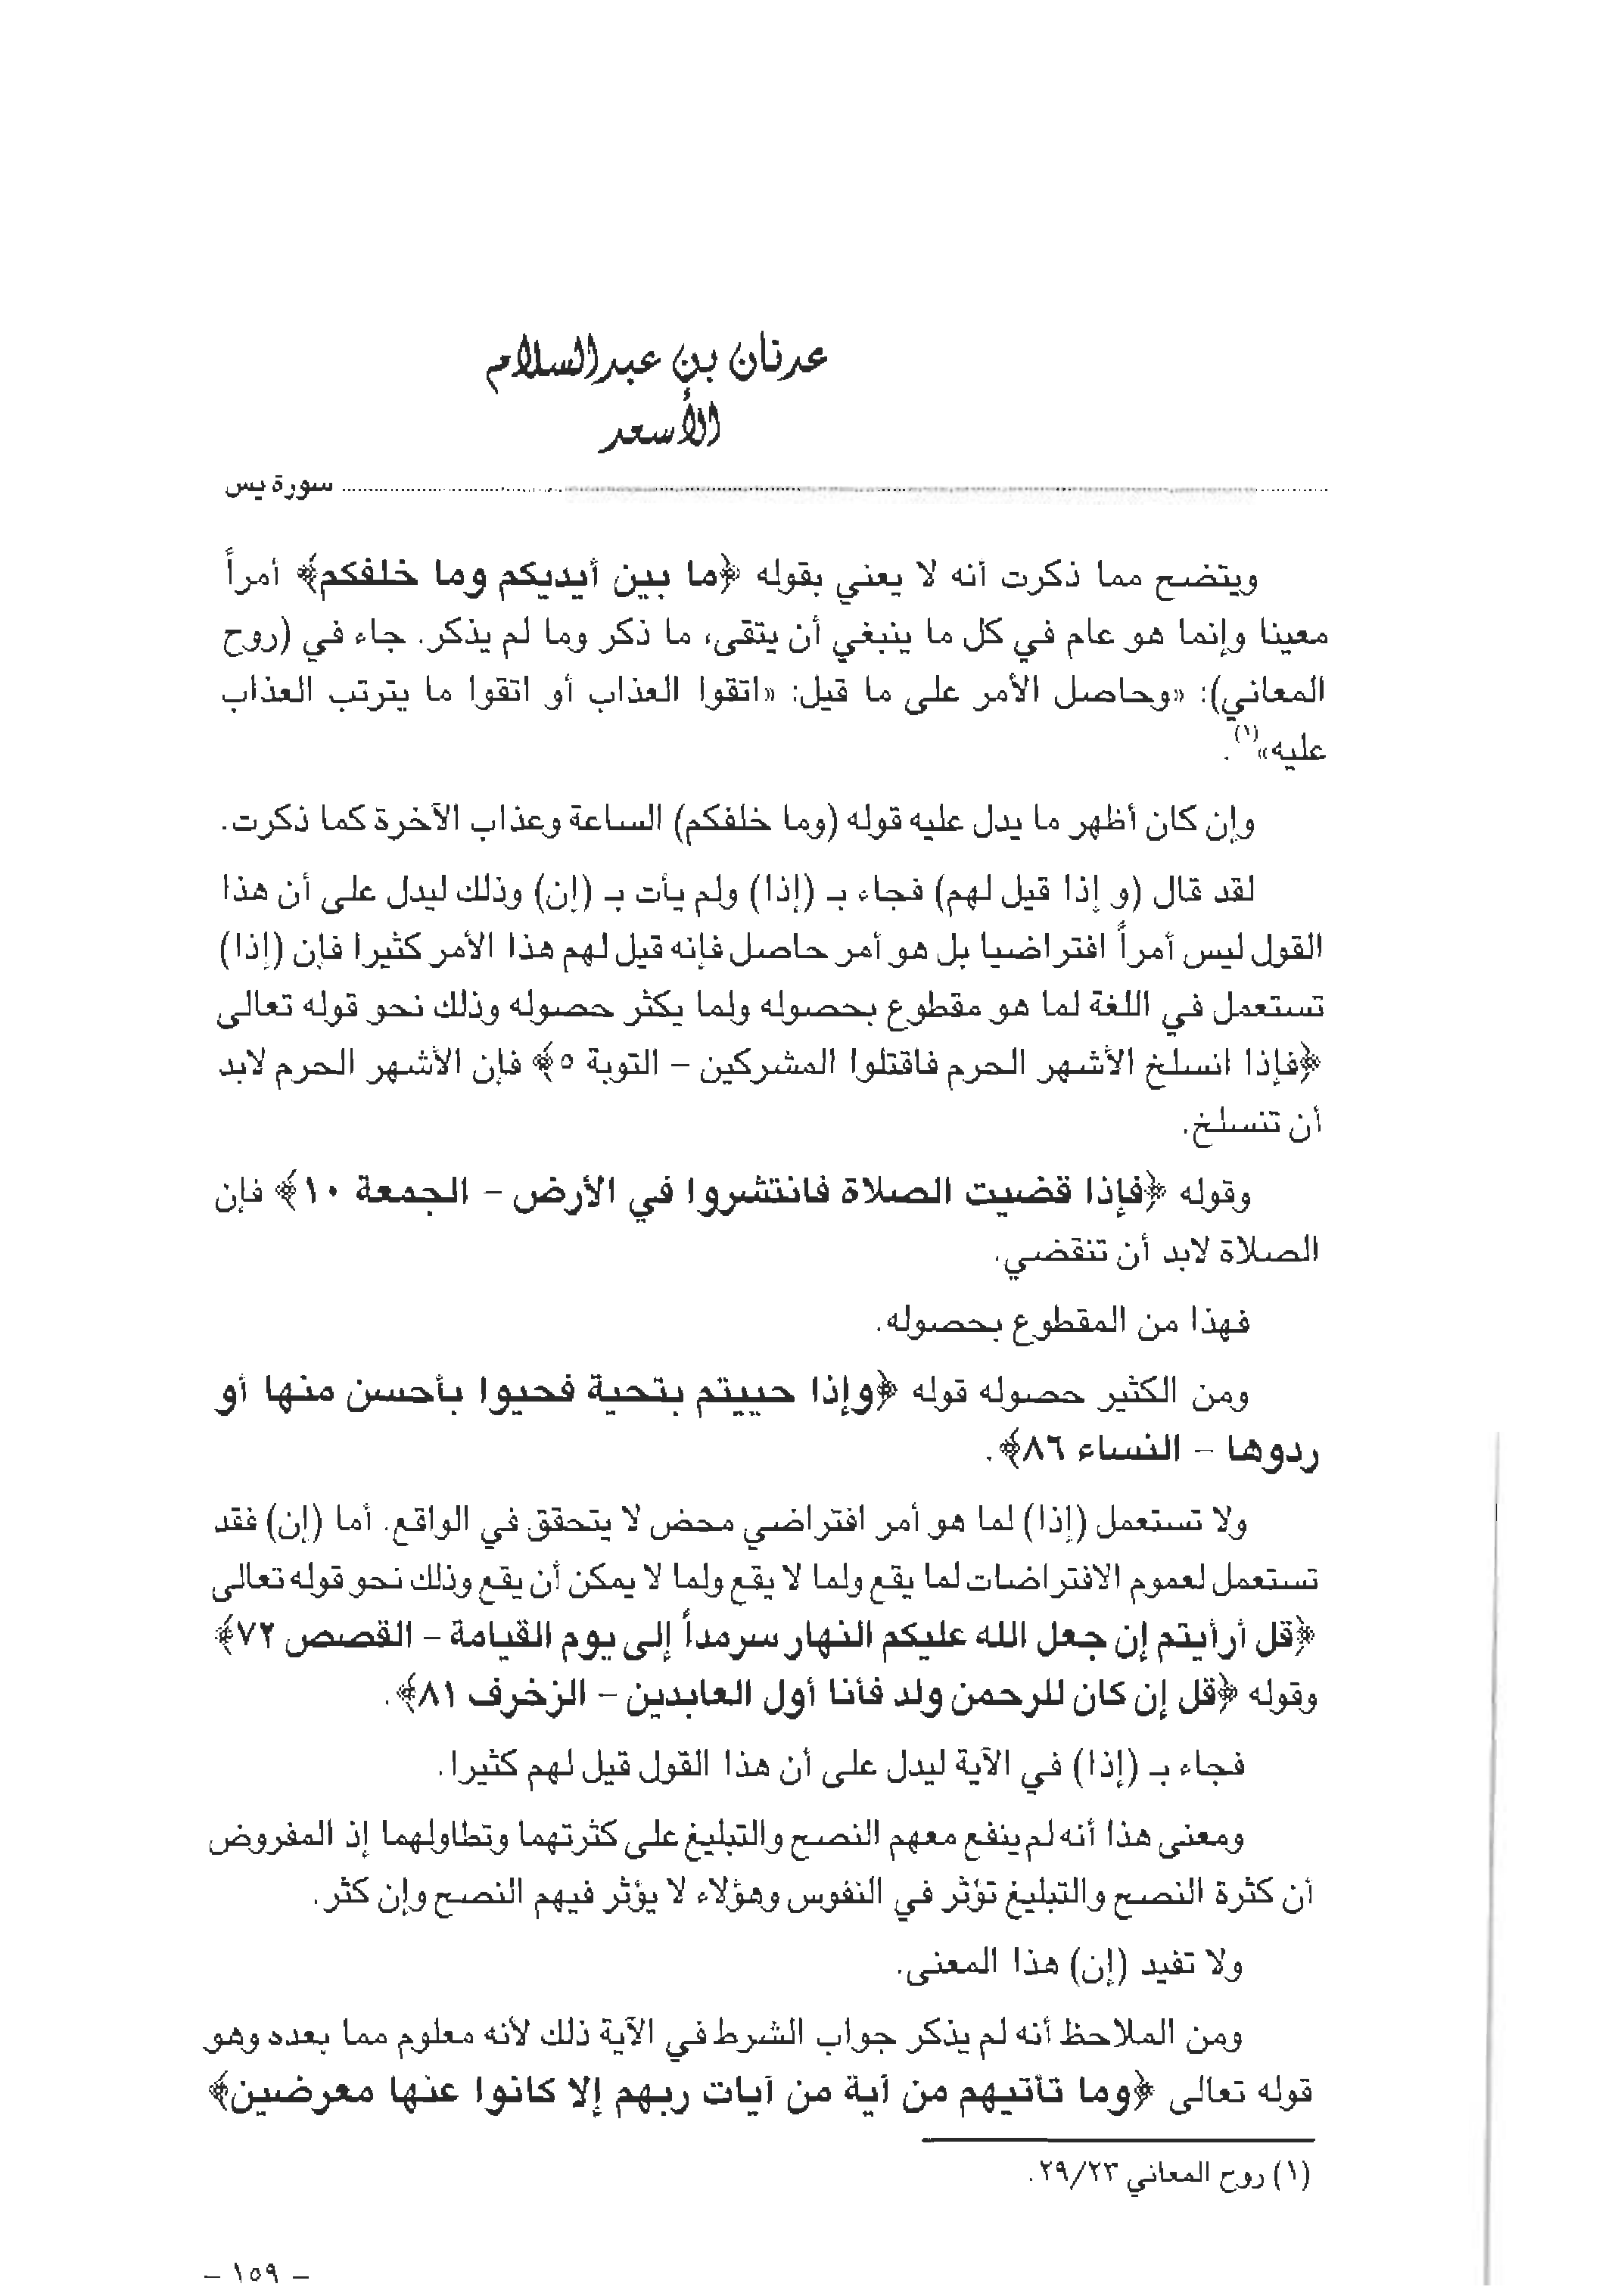 عدنان بن عبدالسلام
الأسعد
سورة يس
ويتضح مما ذكرت أنه لا يعني بقوله ﴿ما بين أيديكم وما خلفكم﴾ أمراً
معينا وإنما هو عام في كل ما ينبغي أن يتقى، ما ذكر وما لم يذكر. جاء في (روح
المعاني): «وحاصل الأمر على ما قيل: «اتقوا العذاب أو اتقوا ما يترتب العذاب
عليه»(١).
وإن كان أظهر ما يدل عليه قوله (وما خلفكم) الساعة وعذاب الآخرة كما ذكرت.
لقد قال (و إذا قيل لهم) فجاء بـ (إذا) ولم يأت بـ (إن) وذلك ليدل على أن هذا
القول ليس أمراً افتراضيا بل هو أمر حاصل فإنه قيل لهم هذا الأمر كثيرا فإن (إذا)
تستعمل في اللغة لما هو مقطوع بحصوله ولما يكثر حصوله وذلك نحو قوله تعالى
﴿فإذا انسلخ الأشهر الحرم فاقتلوا المشركين – التوبة ٥﴾ فإن الأشهر الحرم لابد
أن تنسلخ.
وقوله ﴿فإذا قضيت الصلاة فانتشروا في الأرض – الجمعة ١٠﴾ فإن
الصلاة لابد أن تنقضي.
فهذا من المقطوع بحصوله.
ومن الكثير حصوله قوله ﴿وإذا حييتم بتحية فحيوا بأحسن منها أو
ردوها – النساء ٨٦﴾.
ولا تستعمل (إذا) لما هو أمر افتراضي محض لا يتحقق في الواقع. أما (إن) فقد
تستعمل لعموم الافتراضات لما يقع ولما لا يقع ولما لا يمكن أن يقع وذلك نحو قوله تعالى
﴿قل أرأيتم إن جعل الله عليكم النهار سرمداً إلى يوم القيامة – القصص ٧٢﴾
وقوله ﴿قل إن كان للرحمن ولد فأنا أول العابدين – الزخرف ٨١﴾.
فجاء بـ (إذا) في الآية ليدل على أن هذا القول قيل لهم كثيرا.
ومعنى هذا أنه لم ينفع معهم النصح والتبليغ على كثرتهما وتطاولهما إذ المفروض
أن كثرة النصح والتبليغ تؤثر في النفوس وهؤلاء لا يؤثر فيهم النصح وإن كثر.
ولا تفيد (إن) هذا المعنى.
ومن الملاحظ أنه لم يذكر جواب الشرط في الآية ذلك لأنه معلوم مما بعده وهو
قوله تعالى ﴿وما تأتيهم من آية من آيات ربهم إلا كانوا عنها معرضين﴾
(١) روح المعاني ٢٩/٢٣.
– ١٥٩ –